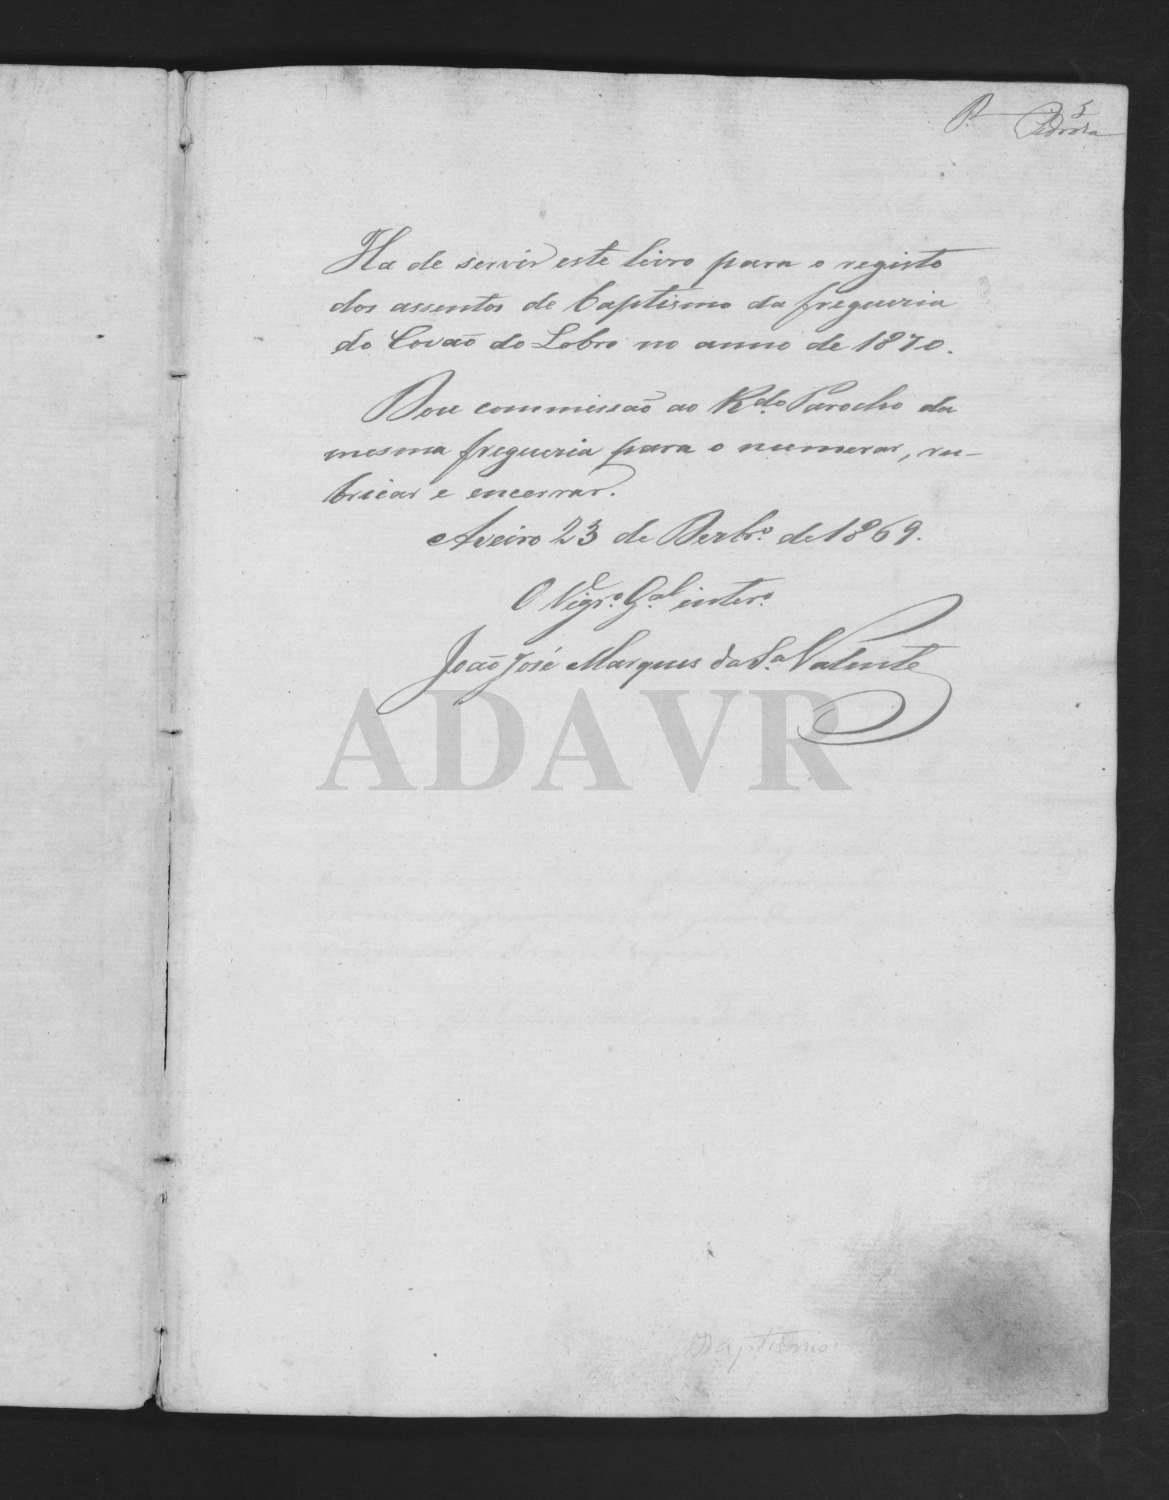 5
Ha de servir este livro para o registo
dos assentos de baptismo da freguezia
do Covão do Lobo no anno de 1870.
Dou commissão ao R.do Parocho da
mesma freguezia para o numerar, ru-
bricar e encerrar.
Aveiro 23 de Dezbr.º de 1869.
O Vigr.º G.al inter.º
João José Marques da S.a Valente
ADAVR
Baptismo